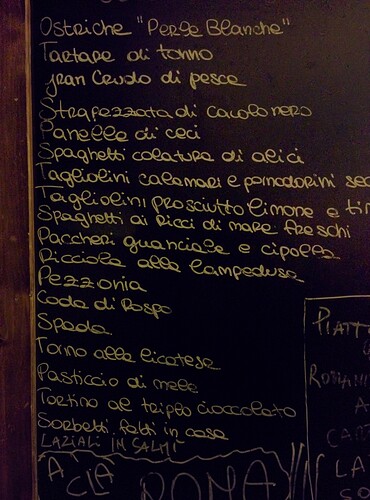 Ostriche "Perle Blanche"
Tartare di tonno
Gran Crudo di pesce
Strapezzata di cavolo nero
Panelle di ceci
Spaghetti colatura di alici
Tagliolini calamari e pomodorini sec
Tagliolini prosciutto limone e tim
Spaghetti ai Ricci di mare freschi
Paccheri guanciale e cipolla
Ricciola alla lampedusa
Pezzonia
Coda di Rospo
Spada
Tonno alla licatese
Pasticcio di mele
Tortino al triplo cioccolato
Sorbetti fatti in casa
LAZIALI IN SALMÌ
PIATT
ROMAN
A
CART
LA
SO
A CLA
ROMA